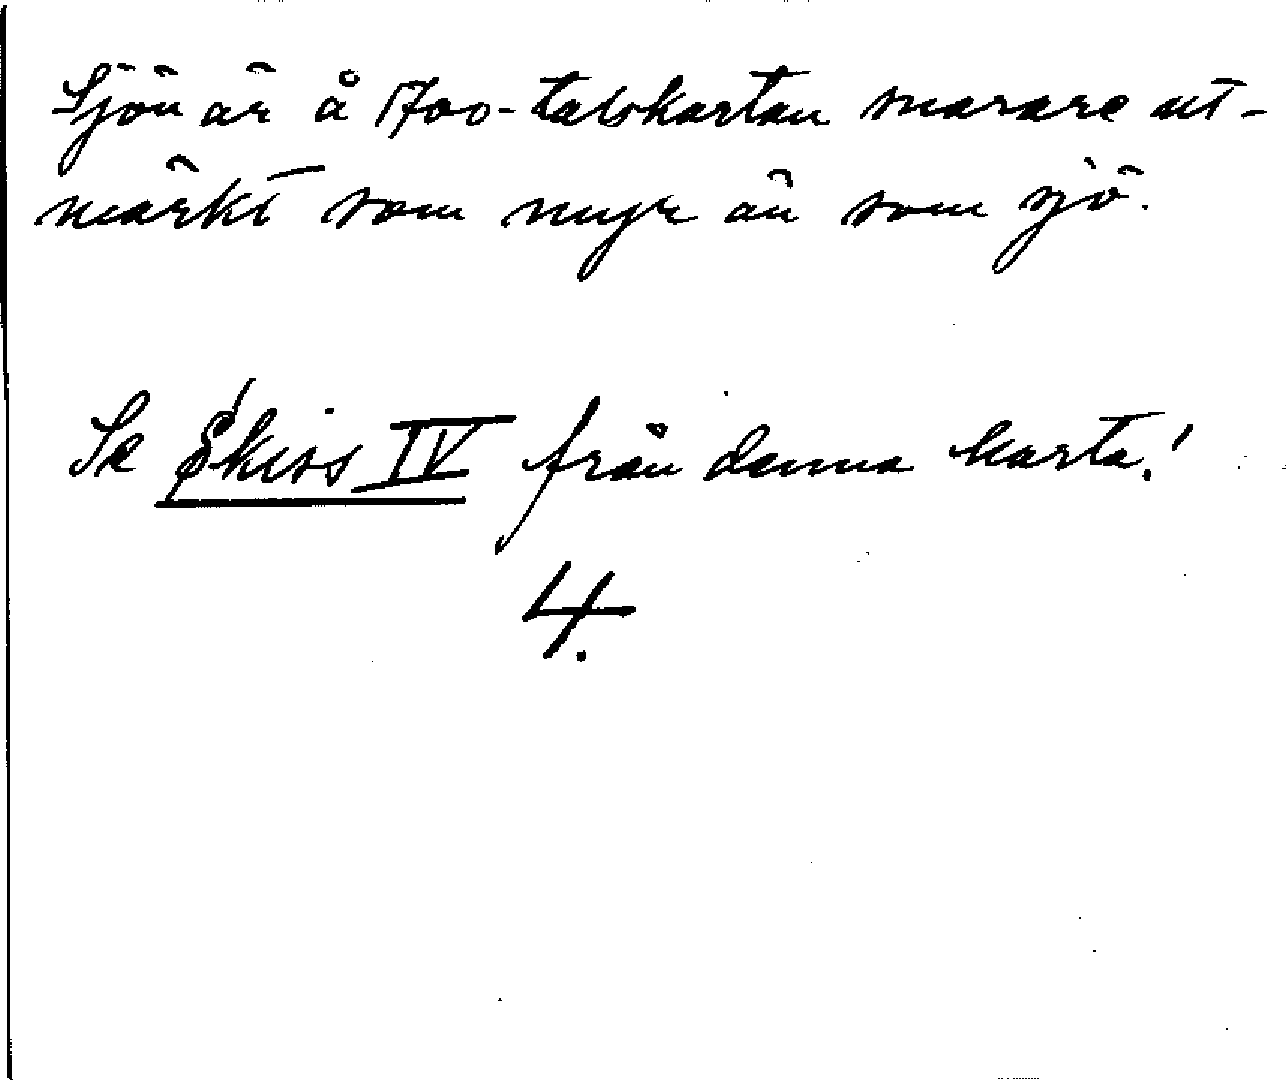 Sjön är å 1700-talskartan snarare ut-
märkt som myr än som sjö.
Se Skiss IV från denna karta!
4.